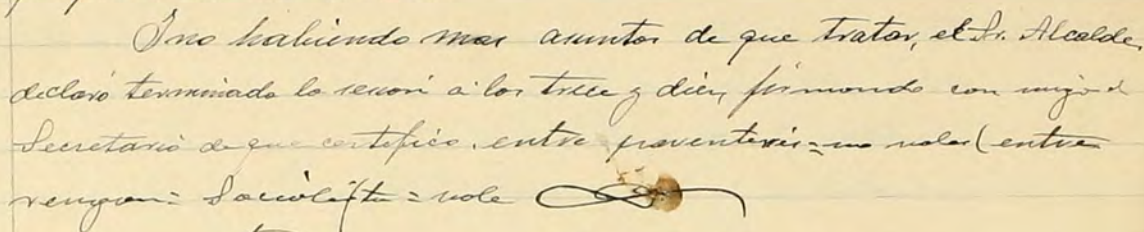 I no habiendo mas asuntos de que tratar, el Sr. Alcalde,
declaró terminada la sesión a las trece y diez, firmando con migo el
Secretario de que certifico. entre parentesis = no vale (entre
renglon = Socialista = vale